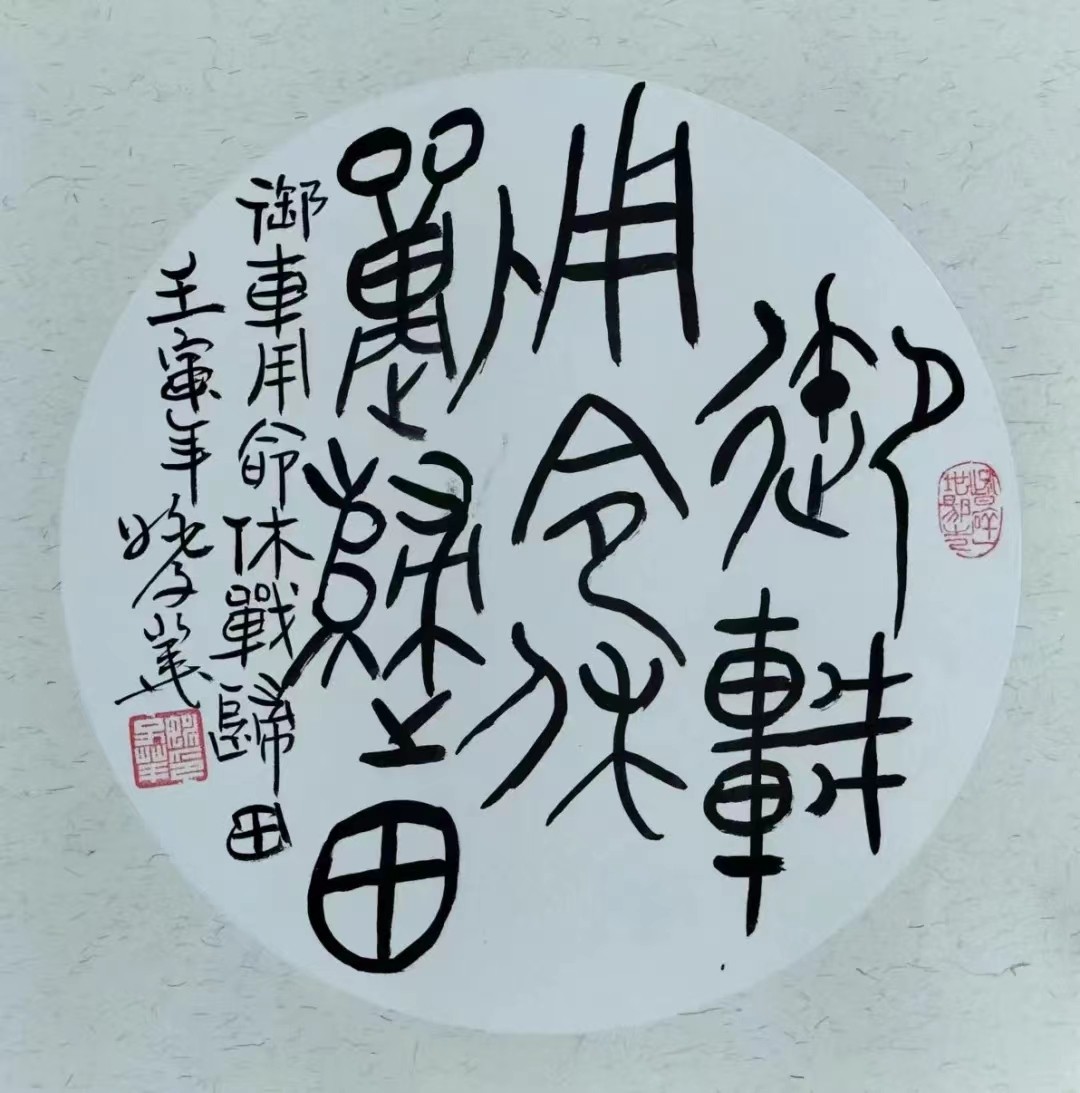 御車
用命休
戰歸田
御車用命休戰歸田
壬寅年